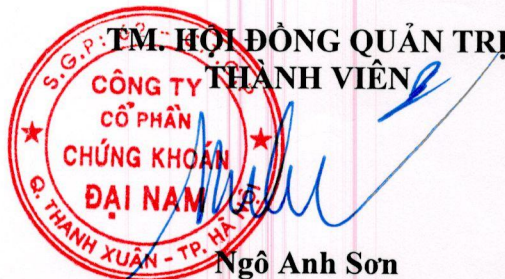 TM. HỘI ĐỒNG QUẢN TRỊ
THÀNH VIÊN
CÔNG TY
CỔ PHẦN
CHỨNG KHOÁN
ĐẠI NAM
Q. THANH XUÂN - TP. HÀ NỘI
Ngô Anh Sơn